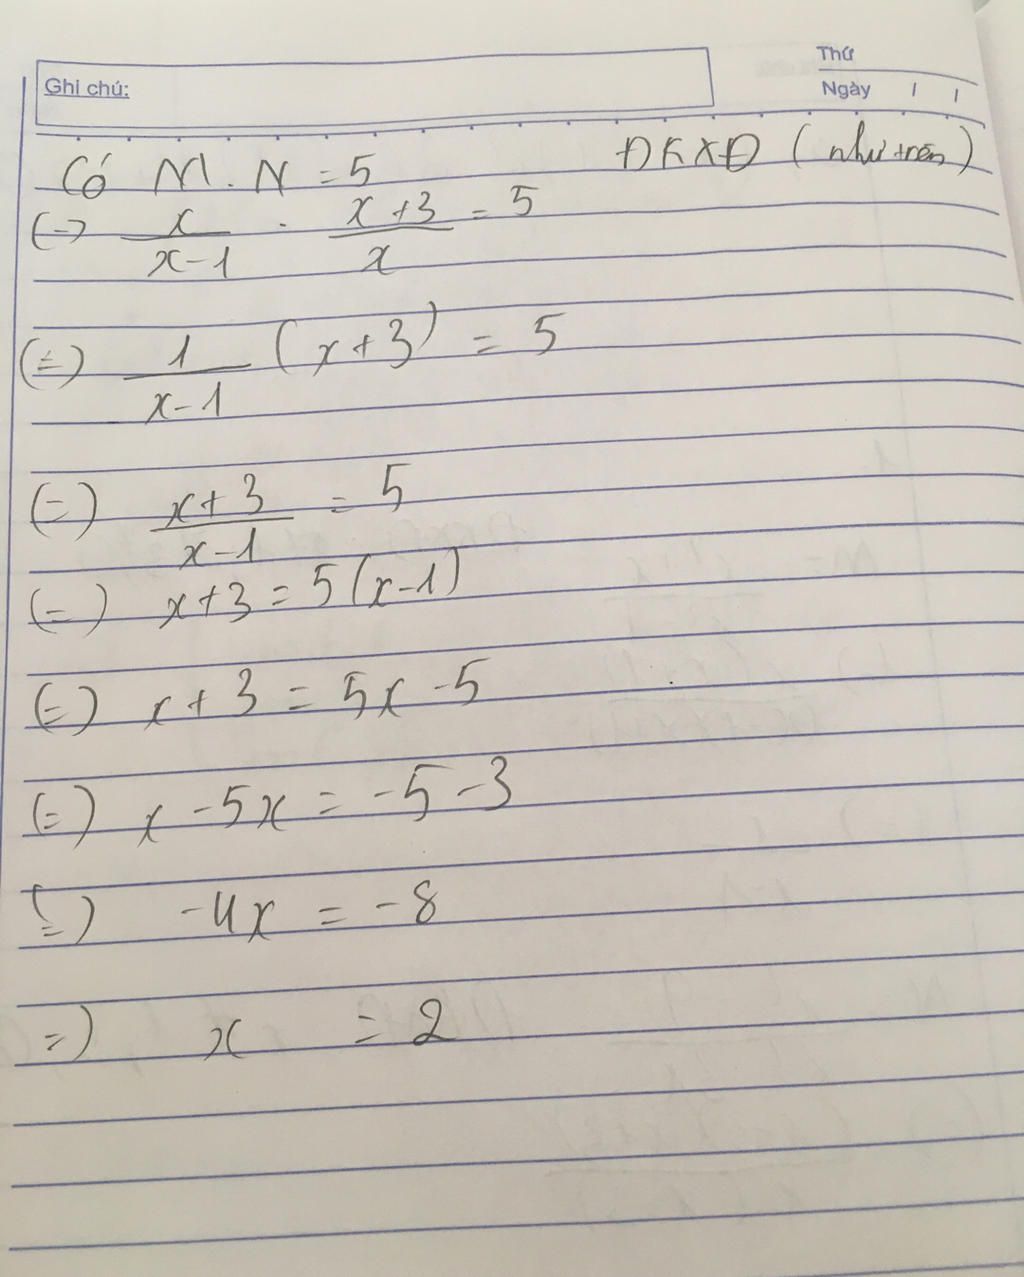 Thứ
Ghi chú:
Ngày / /
Có M . N = 5 ĐKXĐ (như trên)
(-) x/(x-1) . (x+3)/x = 5
(=) 1/(x-1) (x+3) = 5
(=) (x+3)/(x-1) = 5
(=) x+3 = 5(x-1)
(=) x+3 = 5x-5
(=) x -5x = -5-3
(=) -4x = -8
=) x = 2